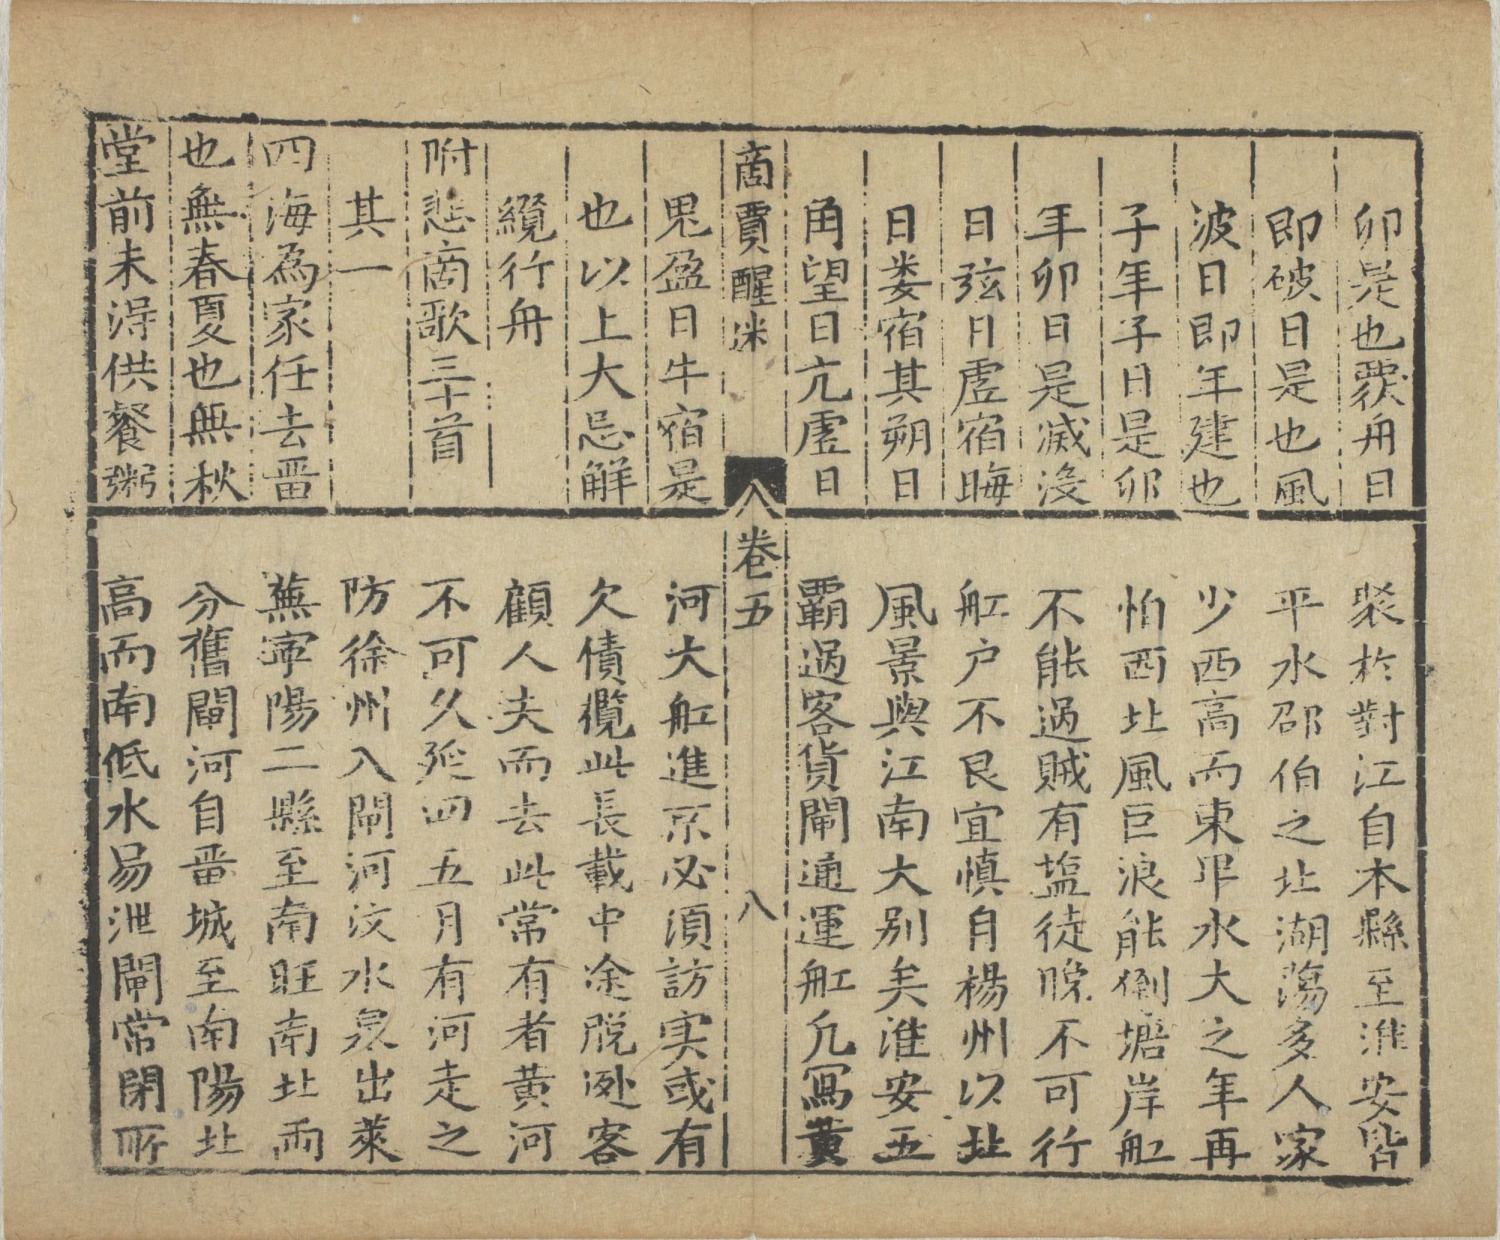 卯是也覆舟日
即破日是也風
波日即年建也
子年子日是卯
年卯日是滅沒
日弦日虛宿晦
日娄宿其朔日
角望日亢虛日
鬼盈日牛宿是
也以上大忌解
纜行舟
附悲商歌三十首
其一
四海為家任去畱
也無春夏也無秋
堂前未淂供餐粥
商賈醒迷 卷五 八
聚於對江自本縣至淮安皆
平水邵伯之北湖蕩多人家
少西高而東卑水大之年再
怕西北風巨浪能倒塘岸舡
不能過賊有塩徒晚不可行
舡户不良宜慎自楊州以北
風景與江南大別矣淮安五
覇過客貨閘通運舡凢寫黄
河大舡進京必須訪实或有
欠債攬此長載中途脱逃客
顧人夫而去此常有者黄河
不可久延四五月有河走之
防徐州入閘河汶水泉出萊
蕪寧陽二縣至南旺南北而
分舊閘河自畱城至南陽北
高而南低水易泄閘常閉所